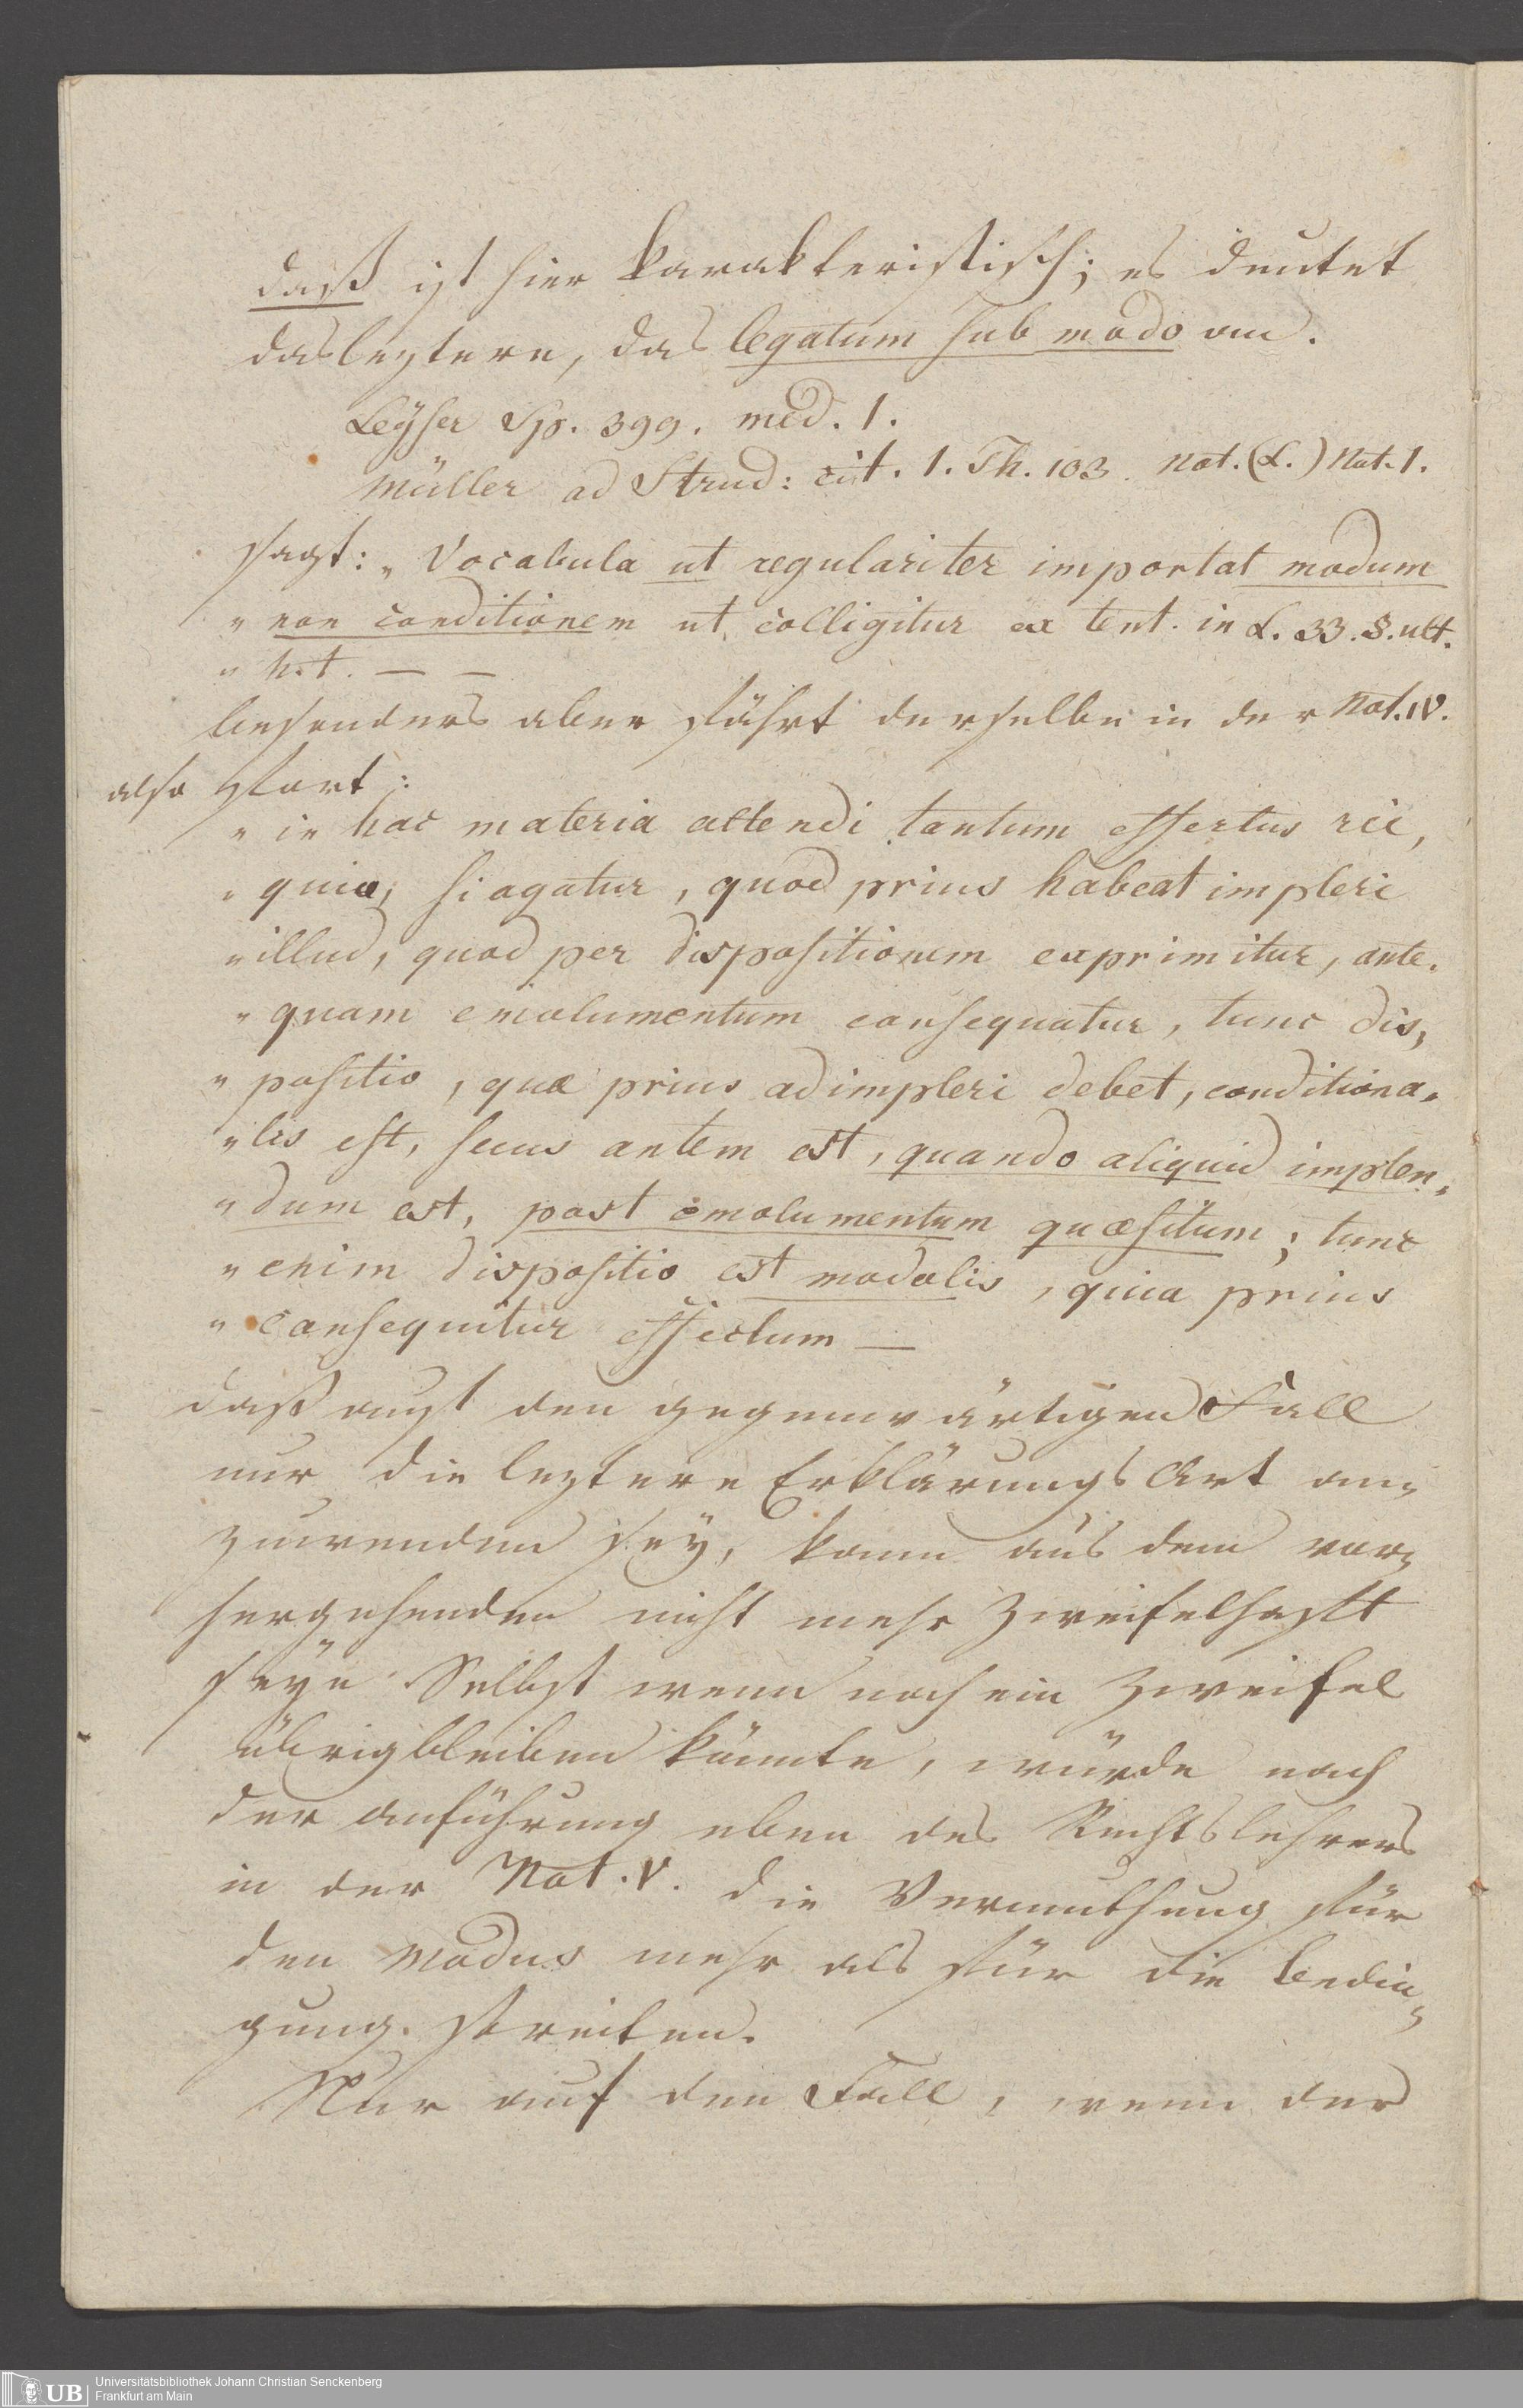 daß ist hier karakteristisch; es deutet
das leztere, das legatum sub modo an.
Leyser Sp. 399. med. 1.
Müller ad Strud: cit. 1. Th. 103. not. (L.) Not. 1.
sagt: „Vocabula ut regulariter importat modum
„non conditionem ut colligitur ex text. in L. 33. §. ult.
„h. t. — —
besonders aber fährt derselbe in der Not. IV.
also fort:
„in hac materia attendi tantum effectus rei,
„quia, si agatur, quod prius habeat impleri
„illud, quod per dispositionem exprimitur, ante-
„quam emolumentum consequatur, tunc dis-
„positio, quæ prius adimpleri debet, conditiona-
„lis est, secus autem est, quando aliquid implen-
„dum est, post emolumentum quæsitum; tunc
„enim dispositio est modalis, quia prius
„consequitur effectum —
daß auf den gegenwärtigen Fall
nur die leztere Erklärungs Art an-
zuwenden sey, kann aus dem vor-
hergehenden nicht mehr zweifelhafft
seyn. Selbst wenn noch ein Zweifel
übrigbleiben könnte, würde nach
der anführung eben des Rechtslehrers
in der Not. V. die Vermuthung für
den Modus mehr als für die bedin-
gung streiten.
Nur auf den Fall, wenn der
UB Universitätsbibliothek Johann Christian Senckenberg
Frankfurt am Main